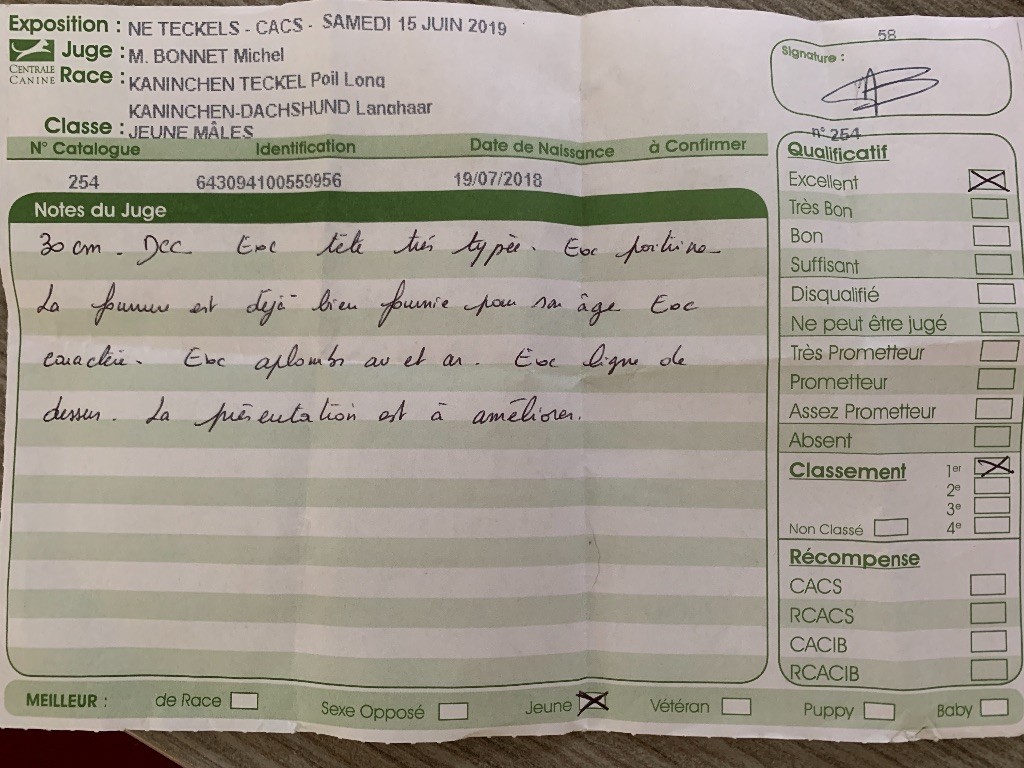 Exposition : NE TECKELS - CACS - SAMEDI 15 JUIN 2019
CENTRALE CANINE
Juge : M. BONNET Michel
Race : KANINCHEN TECKEL Poil Long
KANINCHEN-DACHSHUND Langhaar
Classe : JEUNE MÂLES
58
Signature :
N° Catalogue Identification Date de Naissance à Confirmer
254 643094100559956 19/07/2018
Notes du Juge
30 cm. DCC Exc tête très typée. Exc poitrine
La fourrure est déjà bien fournie pour son âge Exc
caractère. Exc aplombs av et ar. Exc ligne de
dessus. La présentation est à améliorer.
n° 254
Qualificatif
Excellent
Très Bon
Bon
Suffisant
Disqualifié
Ne peut être jugé
Très Prometteur
Prometteur
Assez Prometteur
Absent
Classement 1er
2e
3e
Non Classé 4e
Récompense
CACS
RCACS
CACIB
RCACIB
MEILLEUR : de Race Sexe Opposé Jeune Vétéran Puppy Baby